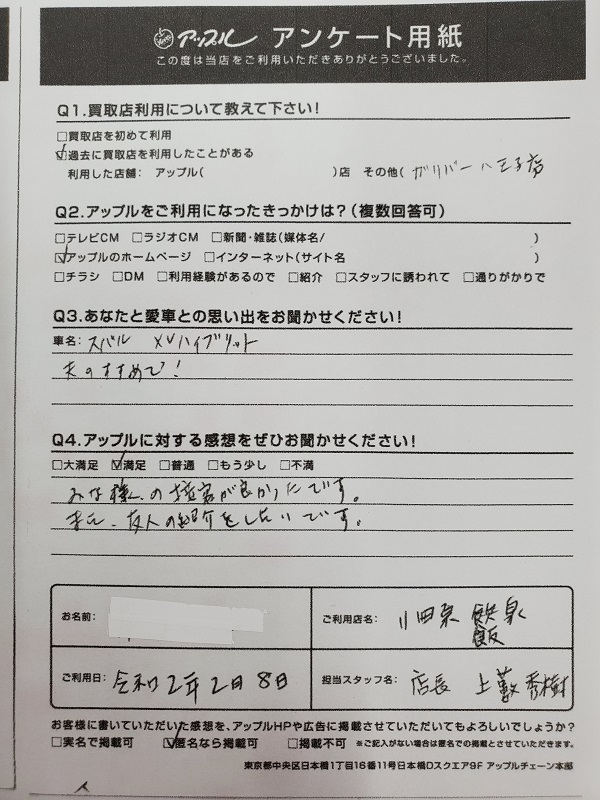 アップル アンケート用紙
この度は当店をご利用いただきありがとうございました。
Q1.買取店利用について教えて下さい!
□買取店を初めて利用
☑過去に買取店を利用したことがある
利用した店舗: アップル( )店 その他( ガリバー八王子店
Q2.アップルをご利用になったきっかけは?(複数回答可)
□テレビCM □ラジオCM □新聞・雑誌(媒体名/ )
☑アップルのホームページ □インターネット(サイト名 )
□チラシ □DM □利用経験があるので □紹介 □スタッフに誘われて □通りがかりで
Q3.あなたと愛車との思い出をお聞かせください!
車名: スバル XVハイブリット
夫のすすめで!
Q4.アップルに対する感想をぜひお聞かせください!
□大満足 ☑満足 □普通 □もう少し □不満
みな様の接客が良かったです。
また、友人の紹介をしたいです。
お名前: ご利用店名: 川四泉 飯泉
ご利用日: 令和2年2月8日 担当スタッフ名: 店長 上薮秀樹
お客様に書いていただいた感想を、アップルHPや広告に掲載させていただいてもよろしいでしょうか?
□実名で掲載可 ☑匿名なら掲載可 □掲載不可 ※ご記入がない場合は匿名での掲載とさせていただきます。
東京都中央区日本橋1丁目16番11号日本橋Dスクエア9F アップルチェーン本部